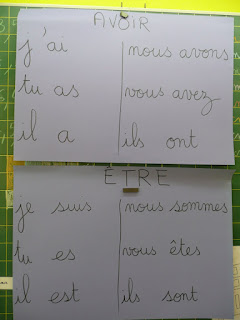 AVOIR
j'ai nous avons
tu as vous avez
il a ils ont
ÊTRE
je suis nous sommes
tu es vous êtes
il est ils sont